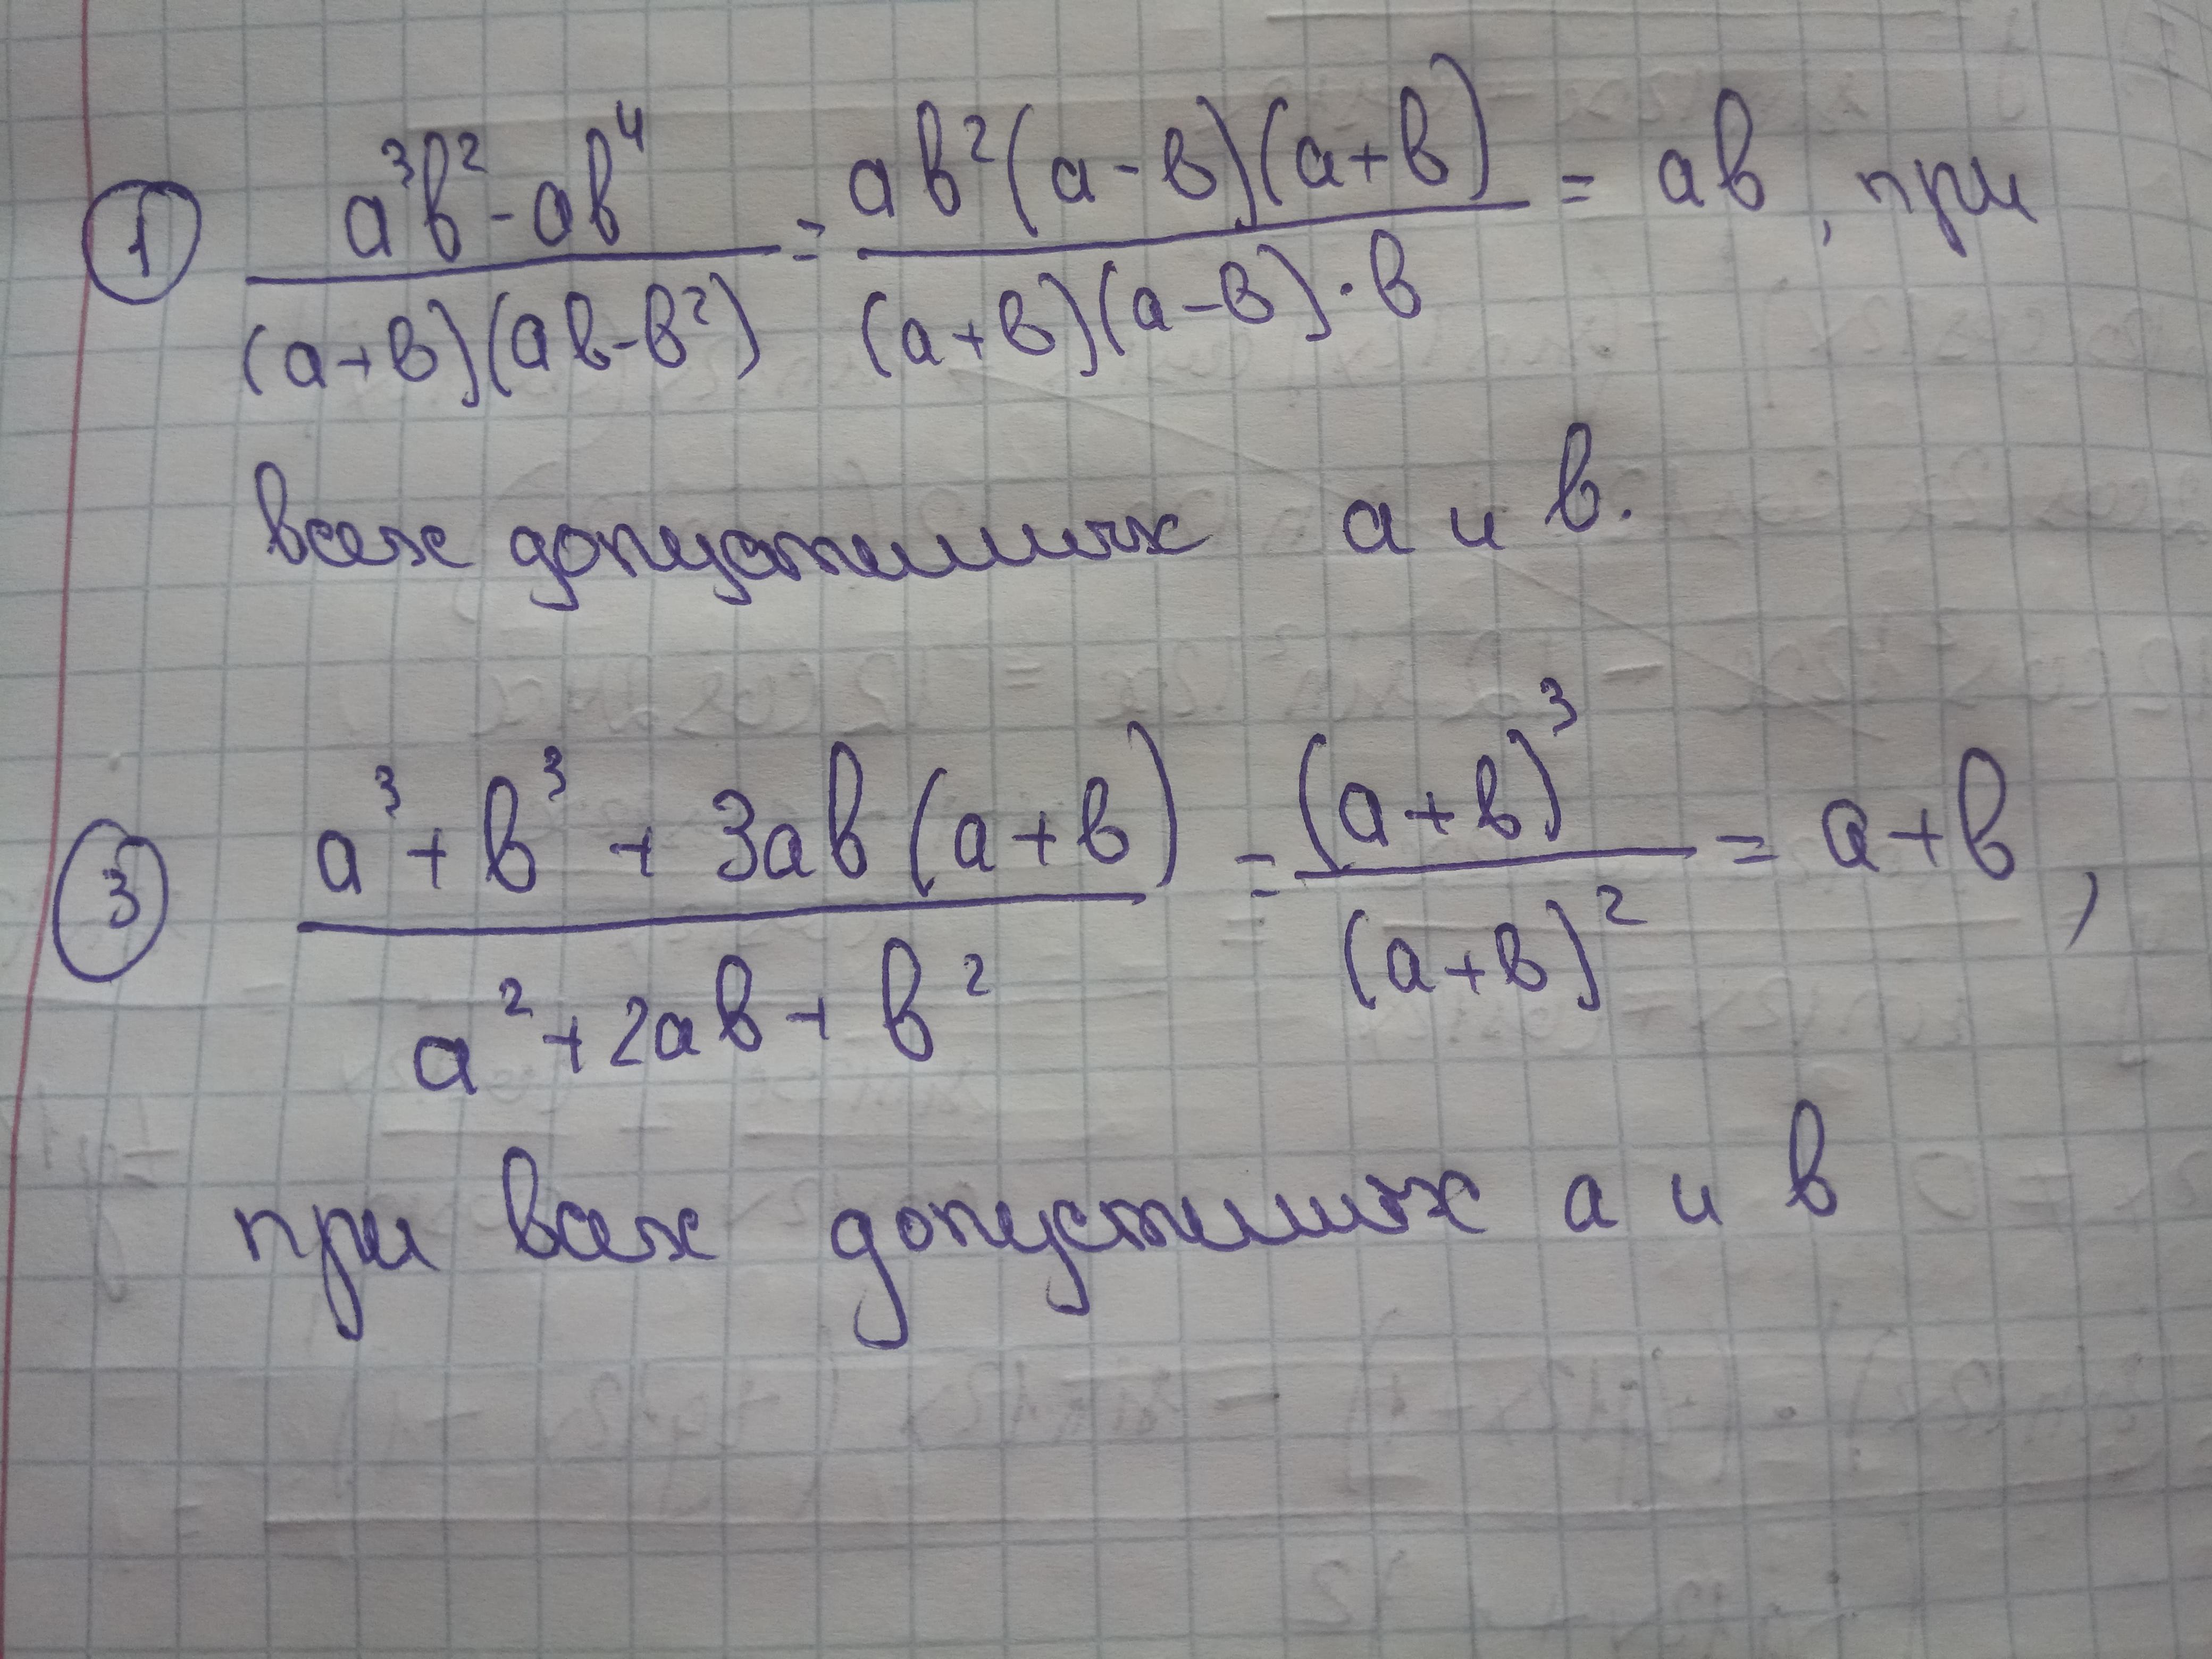 ① a³b²-ab⁴ / (a+b)(ab-b²) = ab²(a-b)(a+b) / (a+b)(a-b)·b = ab, при
всех допустимых a и b.
③ a³+b³+3ab(a+b) / a²+2ab+b² = (a+b)³ / (a+b)² = a+b,
при всех допустимых a и b